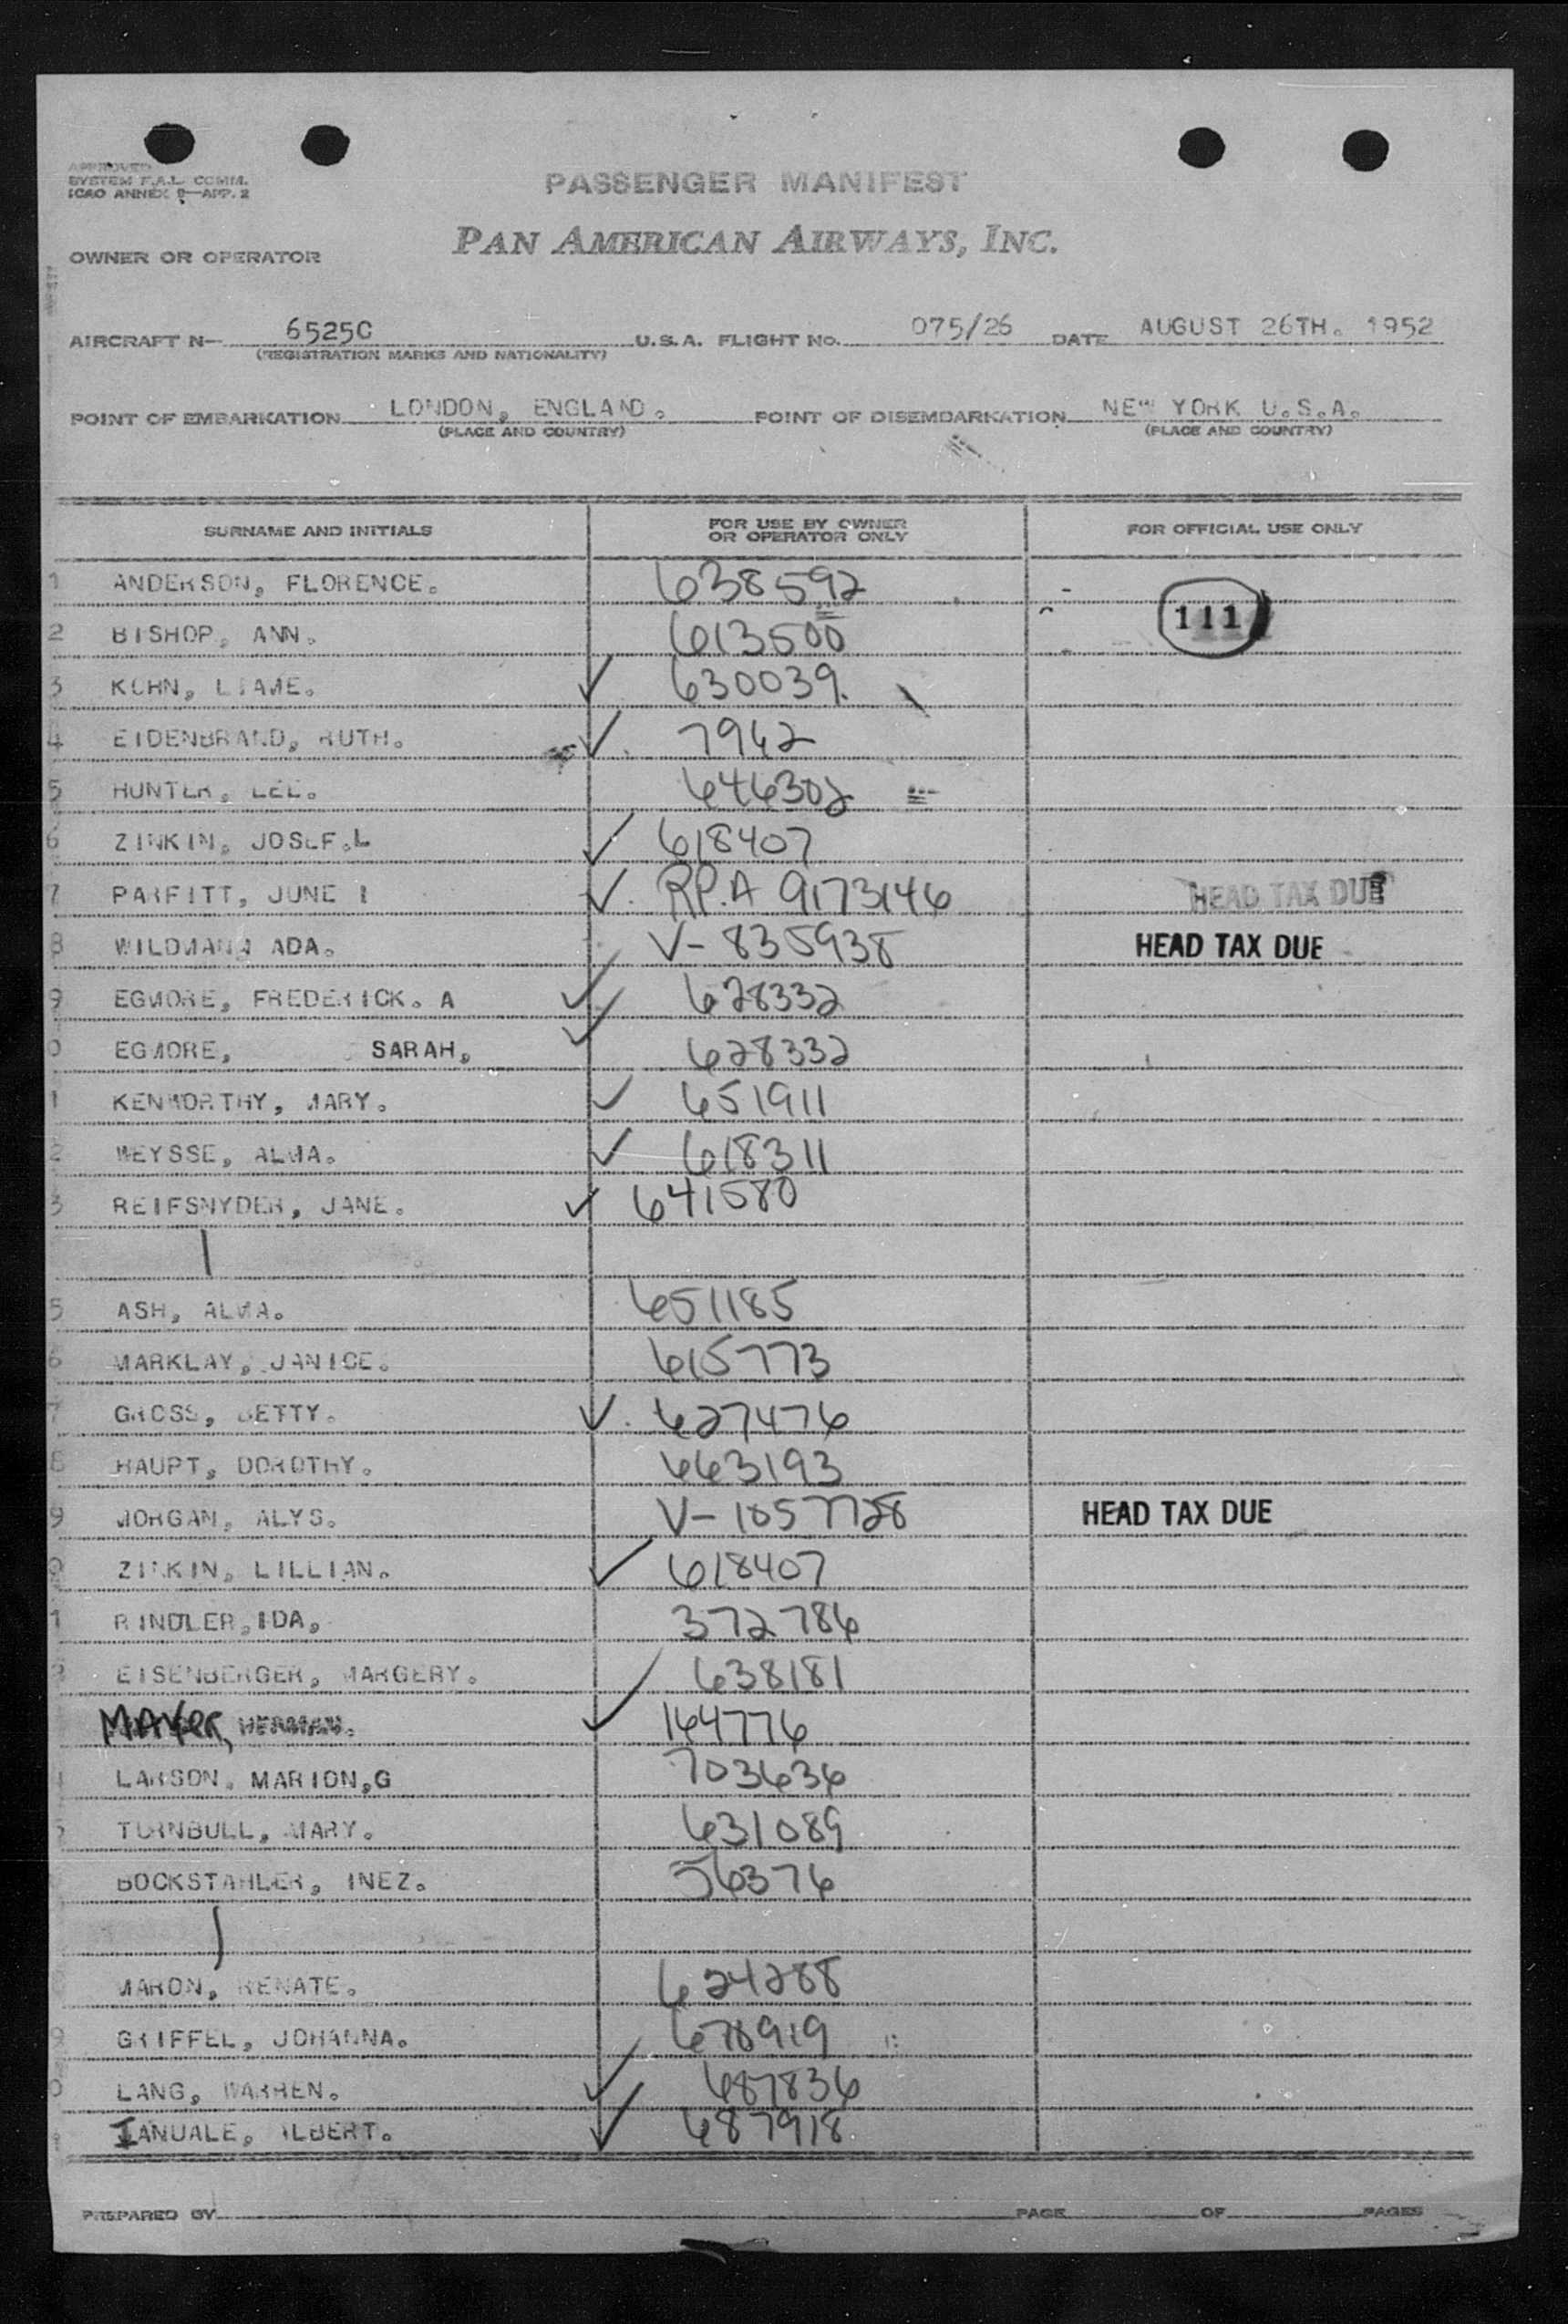 APPROVED
SYSTEM F.A.L. COMM.
ICAO ANNEX 9—APP. 2
PASSENGER MANIFEST
PAN AMERICAN AIRWAYS, INC.
OWNER OR OPERATOR
AIRCRAFT N- 6525C U.S.A. FLIGHT NO. 075/26 DATE AUGUST 26TH. 1952
(REGISTRATION MARKS AND NATIONALITY)
POINT OF EMBARKATION LONDON, ENGLAND. POINT OF DISEMBARKATION NEW YORK U.S.A.
(PLACE AND COUNTRY) (PLACE AND COUNTRY)
SURNAME AND INITIALS FOR USE BY OWNER OR OPERATOR ONLY FOR OFFICIAL USE ONLY
1 ANDERSON, FLORENCE. 638592 111
2 BISHOP, ANN. 613500
3 KOHN, LIANE. ✓ 630039.
4 EIDENBRAND, RUTH. ✓ 7962
5 HUNTER, LEE. 646302
6 ZINKIN, JOSEF.L ✓ 618407
7 PARFITT, JUNE I ✓ RP.A 9173146 HEAD TAX DUE
8 WILDMANN ADA. V- 835938 HEAD TAX DUE
9 EGMORE, FREDERICK. A ✓ 628332
0 EGMORE, SARAH, ✓ 628332
1 KENWORTHY, MARY. ✓ 651911
2 WEYSSE, ALMA. ✓ 618311
3 REIFSNYDER, JANE. ✓ 641580
5 ASH, ALMA. 651185
6 MARKLAY, JANICE. 615773
7 GROSS, BETTY. ✓ 627476
8 HAUPT, DOROTHY. 663193
9 MORGAN, ALYS. V- 1057728 HEAD TAX DUE
0 ZINKIN, LILLIAN. ✓ 618407
1 RINDLER, IDA, 372786
EISENBERGER, MARGERY. 638181
MAYER, HERMAN. ✓ 164776
LARSON, MARION,G 703636
5 TURNBULL, MARY. 631089
BOCKSTAHLER, INEZ. 56376
MARON, RENATE. 624288
9 GRIFFEL, JOHANNA. 678919
0 LANG, WARREN. ✓ 687836
IANUALE, ALBERT. ✓ 687918
PREPARED BY PAGE OF PAGES